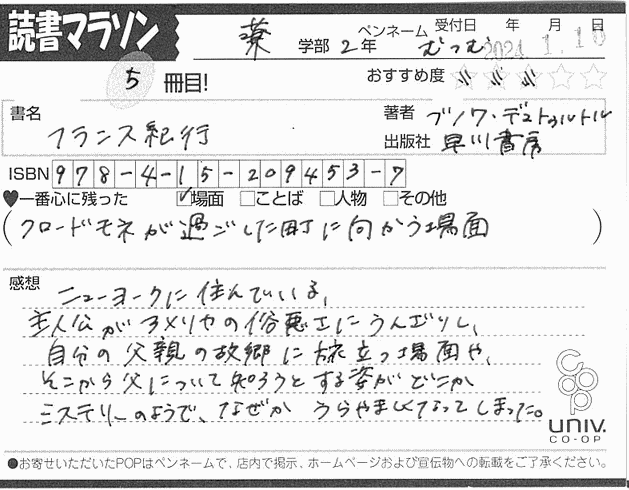 読書マラソン
薬 学部 2年 ペンネーム むつむ 受付日 年 月 日
2024. 1. 10
5 冊目! おすすめ度 ★★★☆☆
書名 フランス紀行
著者 ブノワ・デュトゥルトル
出版社 早川書房
ISBN 978-4-15-209453-7
♥一番心に残った ☑場面 □ことば □人物 □その他
(クロードモネが過ごした町に向かう場面)
感想 ニューヨークに住んでいる、
主人公がアメリカの俗悪さにうんざりし、
自分の父親の故郷に旅立つ場面や、
そこから父について知ろうとする姿がどこか
ミステリーのようで、なぜか うらやましくなってしまった。
coop
univ.
CO-OP
●お寄せいただいたPOPはペンネームで、店内で掲示、ホームページおよび宣伝物への転載をご了承ください。